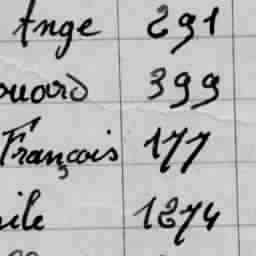 Ange 291
ouard 399
François 177
ile 1274